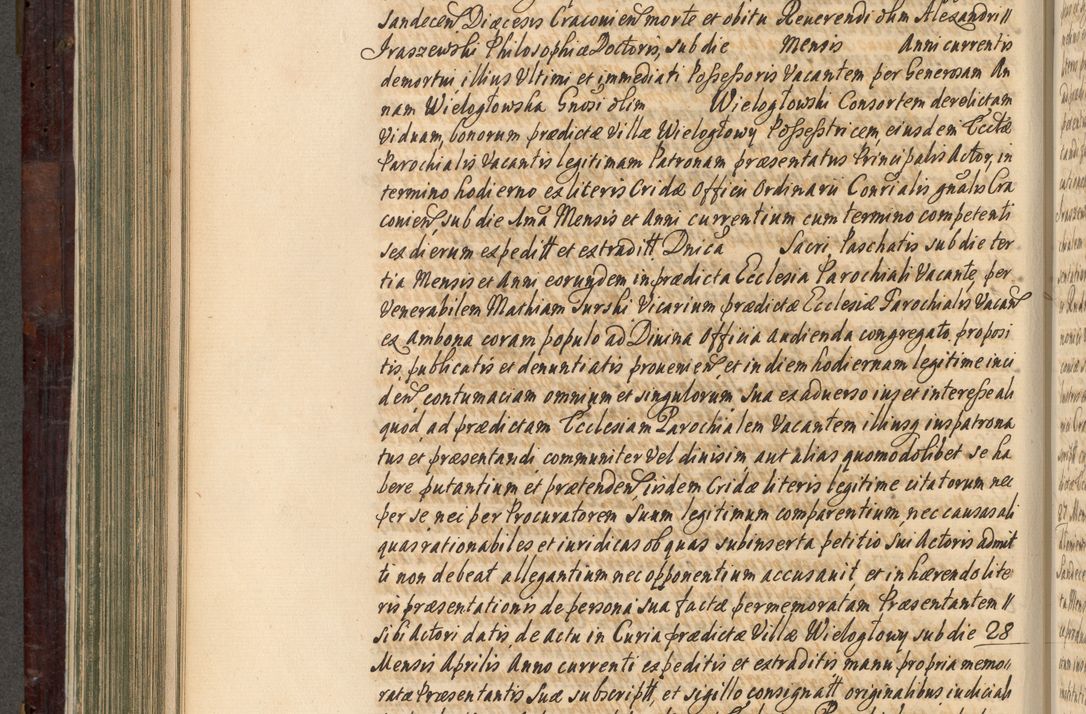 Sandecen Diæcesis Cracovien morte et obitu Reverendi olim Alexandri
Iraszewski Philosophiæ Doctoris, sub die Mensis Anni currentis
demortui, illius Ultimi et immediati Possessoris Vacantem per Generosam An
nam Wielogłowska Gnosi olim Wielogłowski Consortem derelictam
Viduam, bonorum prædictæ Villæ Wielogłowy Possestricem, eiusdem Ecclæ
Parochialis Vacantis legitimam Patronam præsentatus Principalis Actor, in
termino hodierno ex literis Cridæ Officii Ordinarii Consialis gnalis Cra
covien, sub die Ima Mensis et Anni currentium cum termino competenti
sex dierum expeditt et extraditt Dnica Sacri Paschatis sub die ter
tia Mensis et Anni eorundem in prædicta Ecclesia Parochiali Vacante, per
Venerabilem Mathiam Turski Vicarium prædictæ Ecclesiæ Parochialis Vacan
ex Ambona coram populo ad Divina Officia audienda congregato proposi
tis, publicatis et denuntiatis provenien, et in diem hodiernam legitime inci
den, contumaciam omnium et singulorum, sua ex adverso ius et interesse ali
quod, ad prædictam Ecclesiam Parochialem Vacantem illiusq iuspatrona
tus et præsentandi communiter vel divisim aut alias quomodolibet se ha
bere putantium et prætenden, iisdem Cridæ literis legitime citatorum nec
per se nec per Procuratorem suum legitimum comparentium, nec causas ali
quas rationabiles et iuridicas ob quas subinserta petitio sui Actoris admit
ti non debeat allegantium nec opponentium accusavit, et in hærendo lite
ris præsentationis de persona sua factæ per memoratam Præsentantem
sibi Actori datis, de actu in Curia prædictæ Villæ Wielogłowy sub die 28
Mensis Aprilis Anno currenti expeditis et extraditis manu propria memo
ratæ Præsentantis suæ subscriptt, et sigillo consignatt originalibus iudiciali